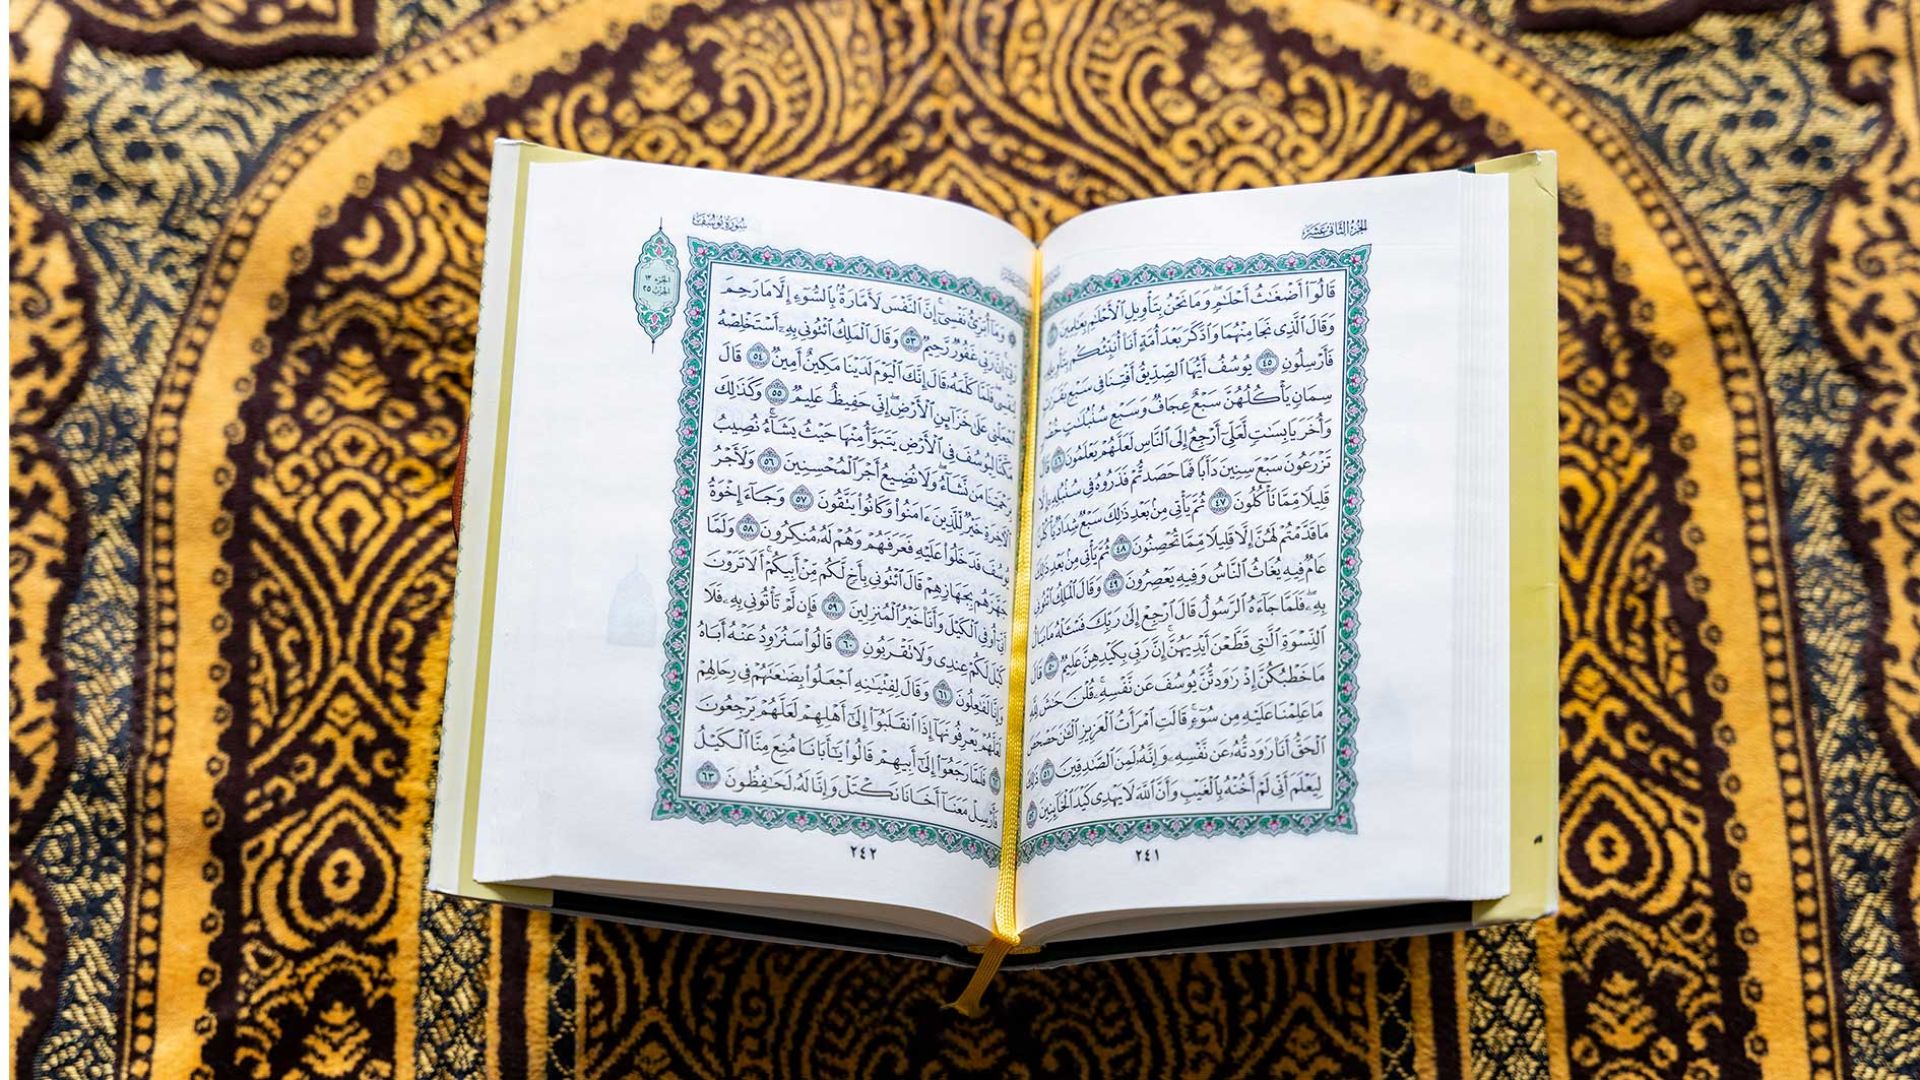 الجزء الثاني عشر
قَالُوٓا۟ أَضْغَٰثُ أَحْلَٰمٍ ۖ وَمَا نَحْنُ بِتَأْوِيلِ ٱلْأَحْلَٰمِ بِعَٰلِمِينَ
وَقَالَ ٱلَّذِى نَجَا مِنْهُمَا وَٱدَّكَرَ بَعْدَ أُمَّةٍ أَنَا۠ أُنَبِّئُكُم بِتَأْوِيلِهِۦ
فَأَرْسِلُونِ ٤٥ يُوسُفُ أَيُّهَا ٱلصِّدِّيقُ أَفْتِنَا فِى سَبْعِ بَقَرَٰتٍ
سِمَانٍ يَأْكُلُهُنَّ سَبْعٌ عِجَافٌ وَسَبْعِ سُنۢبُلَٰتٍ خُضْرٍ
وَأُخَرَ يَابِسَٰتٍ لَّعَلِّىٓ أَرْجِعُ إِلَى ٱلنَّاسِ لَعَلَّهُمْ يَعْلَمُونَ ٤٦ قَالَ
تَزْرَعُونَ سَبْعَ سِنِينَ دَأَبًا فَمَا حَصَدتُّمْ فَذَرُوهُ فِى سُنۢبُلِهِۦٓ إِلَّا
قَلِيلًا مِّمَّا تَأْكُلُونَ ٤٧ ثُمَّ يَأْتِى مِنۢ بَعْدِ ذَٰلِكَ سَبْعٌ شِدَادٌ يَأْكُلْنَ
مَا قَدَّمْتُمْ لَهُنَّ إِلَّا قَلِيلًا مِّمَّا تُحْصِنُونَ ٤٨ ثُمَّ يَأْتِى مِنۢ بَعْدِ ذَٰلِكَ
عَامٌ فِيهِ يُغَاثُ ٱلنَّاسُ وَفِيهِ يَعْصِرُونَ ٤٩ وَقَالَ ٱلْمَلِكُ ٱئْتُونِى
بِهِۦ ۖ فَلَمَّا جَآءَهُ ٱلرَّسُولُ قَالَ ٱرْجِعْ إِلَىٰ رَبِّكَ فَسْـَٔلْهُ مَا بَالُ
ٱلنِّسْوَةِ ٱلَّٰتِى قَطَّعْنَ أَيْدِيَهُنَّ ۚ إِنَّ رَبِّى بِكَيْدِهِنَّ عَلِيمٌ ٥٠ قَالَ
مَا خَطْبُكُنَّ إِذْ رَٰوَدتُّنَّ يُوسُفَ عَن نَّفْسِهِۦ ۚ قُلْنَ حَٰشَ لِلَّهِ
مَا عَلِمْنَا عَلَيْهِ مِن سُوٓءٍ ۚ قَالَتِ ٱمْرَأَتُ ٱلْعَزِيزِ ٱلْـَٰٔنَ حَصْحَصَ
ٱلْحَقُّ أَنَا۠ رَٰوَدتُّهُۥ عَن نَّفْسِهِۦ وَإِنَّهُۥ لَمِنَ ٱلصَّٰدِقِينَ ٥١ ذَٰلِكَ
لِيَعْلَمَ أَنِّى لَمْ أَخُنْهُ بِٱلْغَيْبِ وَأَنَّ ٱللَّهَ لَا يَهْدِى كَيْدَ ٱلْخَآئِنِينَ ٥٢
٢٤١
سورة يوسف
الجزء ١٣
الحزب ٢٥
وَمَآ أُبَرِّئُ نَفْسِىٓ ۚ إِنَّ ٱلنَّفْسَ لَأَمَّارَةٌۢ بِٱلسُّوٓءِ إِلَّا مَا رَحِمَ
رَبِّىٓ ۚ إِنَّ رَبِّى غَفُورٌ رَّحِيمٌ ٥٣ وَقَالَ ٱلْمَلِكُ ٱئْتُونِى بِهِۦٓ أَسْتَخْلِصْهُ
لِنَفْسِى ۖ فَلَمَّا كَلَّمَهُۥ قَالَ إِنَّكَ ٱلْيَوْمَ لَدَيْنَا مَكِينٌ أَمِينٌ ٥٤ قَالَ
ٱجْعَلْنِى عَلَىٰ خَزَآئِنِ ٱلْأَرْضِ ۖ إِنِّى حَفِيظٌ عَلِيمٌ ٥٥ وَكَذَٰلِكَ
مَكَّنَّا لِيُوسُفَ فِى ٱلْأَرْضِ يَتَبَوَّأُ مِنْهَا حَيْثُ يَشَآءُ ۚ نُصِيبُ
بِرَحْمَتِنَا مَن نَّشَآءُ ۖ وَلَا نُضِيعُ أَجْرَ ٱلْمُحْسِنِينَ ٥٦ وَلَأَجْرُ
ٱلْـَٔاخِرَةِ خَيْرٌ لِّلَّذِينَ ءَامَنُوا۟ وَكَانُوا۟ يَتَّقُونَ ٥٧ وَجَآءَ إِخْوَةُ
يُوسُفَ فَدَخَلُوا۟ عَلَيْهِ فَعَرَفَهُمْ وَهُمْ لَهُۥ مُنكِرُونَ ٥٨ وَلَمَّا
جَهَّزَهُم بِجَهَازِهِمْ قَالَ ٱئْتُونِى بِأَخٍ لَّكُم مِّنْ أَبِيكُمْ ۚ أَلَا تَرَوْنَ
أَنِّىٓ أُوفِى ٱلْكَيْلَ وَأَنَا۠ خَيْرُ ٱلْمُنزِلِينَ ٥٩ فَإِن لَّمْ تَأْتُونِى بِهِۦ فَلَا
كَيْلَ لَكُمْ عِندِى وَلَا تَقْرَبُونِ ٦٠ قَالُوا۟ سَنُرَٰوِدُ عَنْهُ أَبَاهُ
وَإِنَّا لَفَٰعِلُونَ ٦١ وَقَالَ لِفِتْيَٰنِهِ ٱجْعَلُوا۟ بِضَٰعَتَهُمْ فِى رِحَالِهِمْ
لَعَلَّهُمْ يَعْرِفُونَهَآ إِذَا ٱنقَلَبُوٓا۟ إِلَىٰٓ أَهْلِهِمْ لَعَلَّهُمْ يَرْجِعُونَ
٦٢ فَلَمَّا رَجَعُوٓا۟ إِلَىٰٓ أَبِيهِمْ قَالُوا۟ يَٰٓأَبَانَا مُنِعَ مِنَّا ٱلْكَيْلُ
فَأَرْسِلْ مَعَنَآ أَخَانَا نَكْتَلْ وَإِنَّا لَهُۥ لَحَٰفِظُونَ ٦٣
٢٤٢